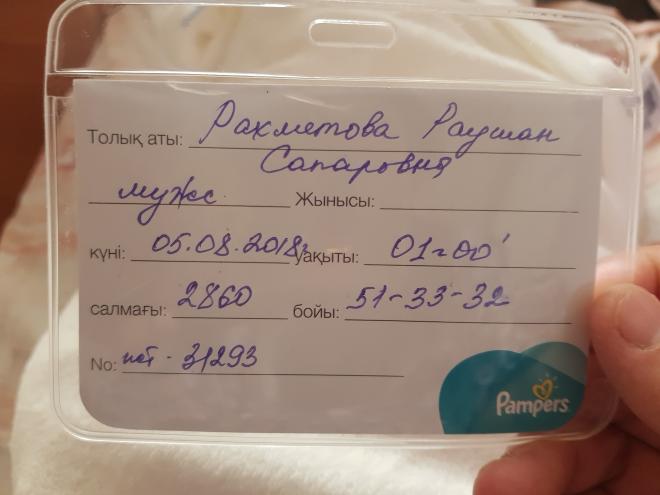 Толық аты: Рахметова Раушан
Сапаровна
мужс Жынысы:
күні: 05.08.2018г уақыты: 01-00'
салмағы: 2860 бойы: 51-33-32
No: ист - 31293
Pampers